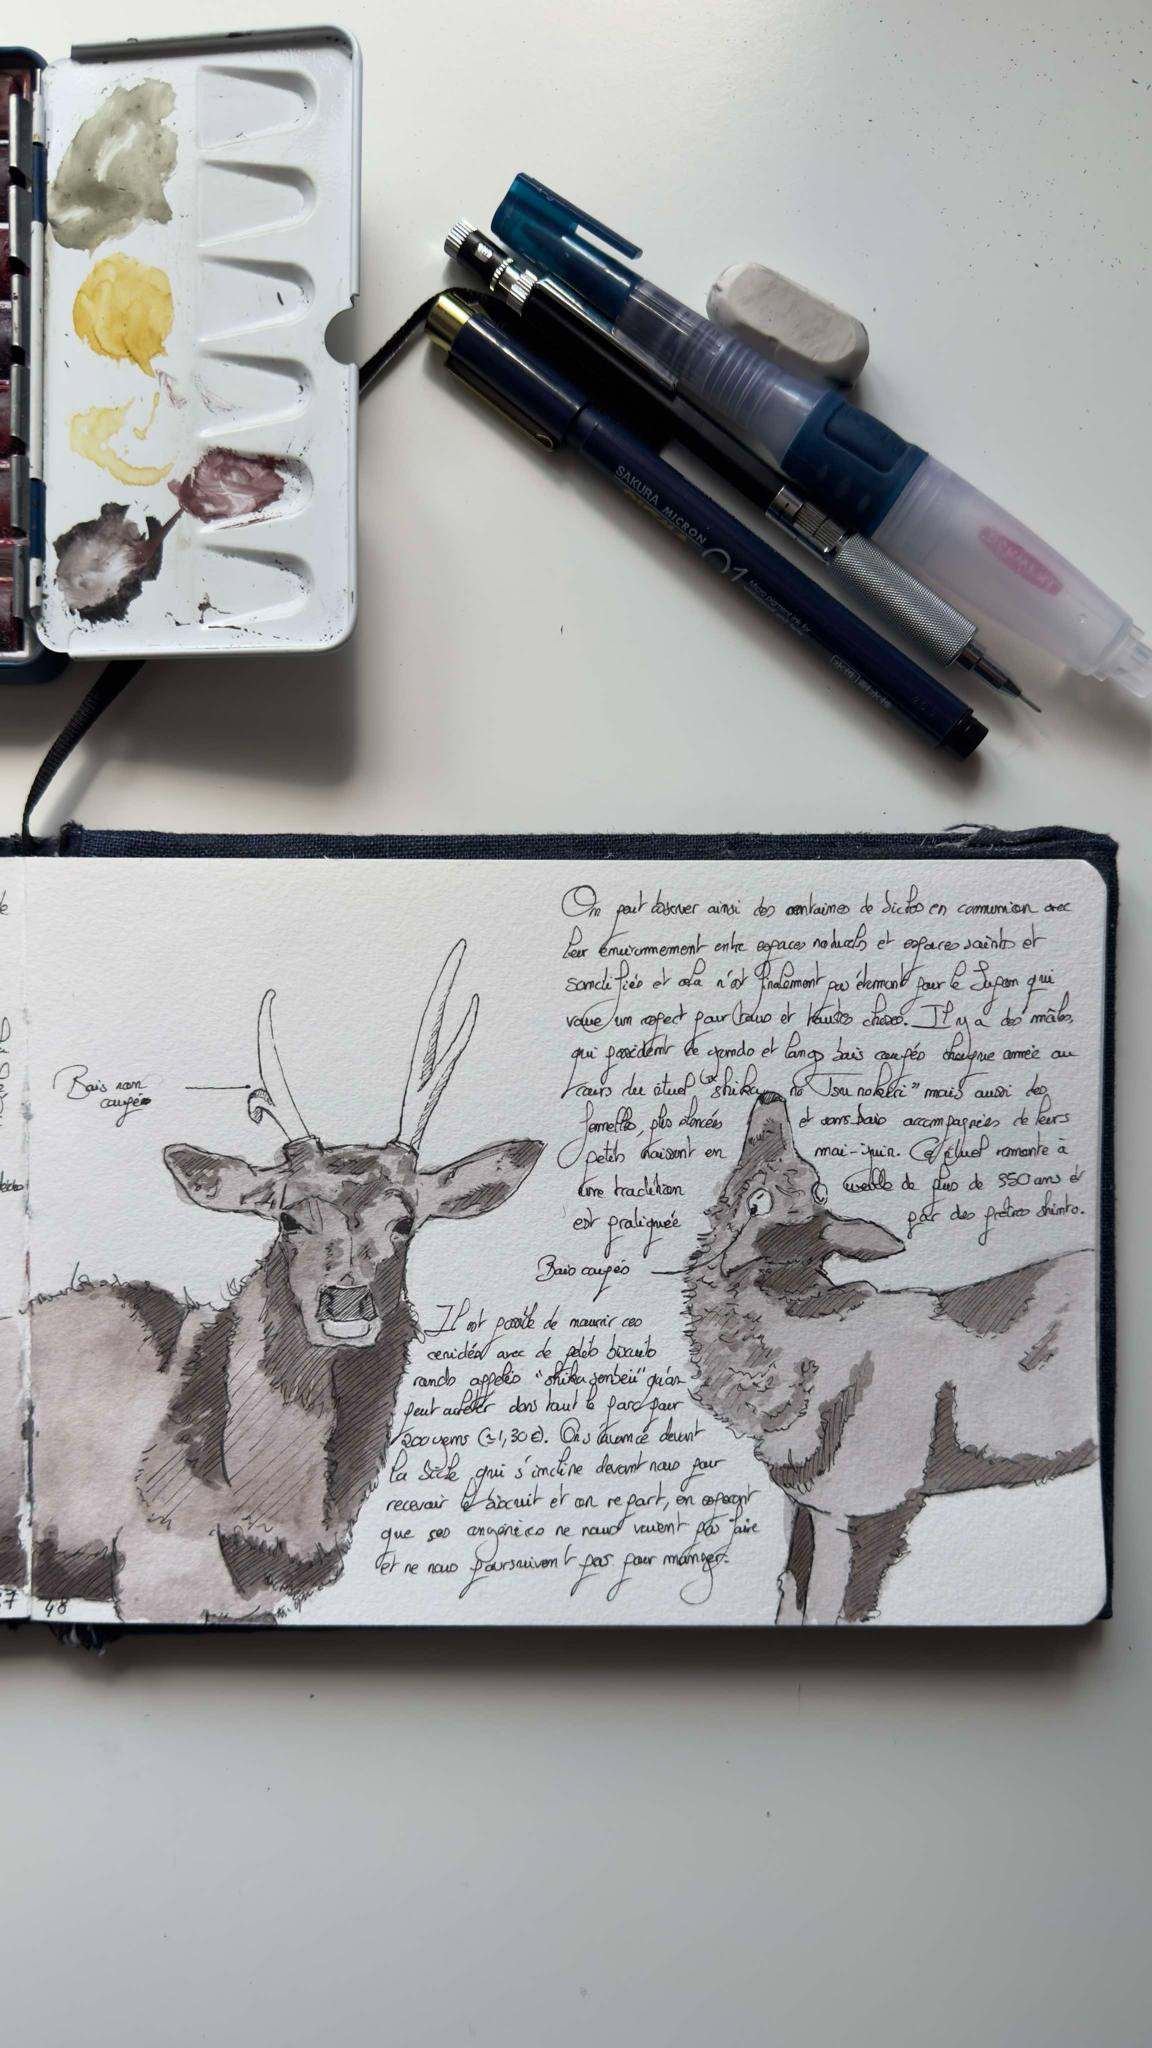 SAKURA MICRON
01
On peut observer ainsi des centaines de Sikas en communion avec
leur environnement entre espaces naturels et espaces saints et
sanctifiés et cela n'est finalement pas étonnant pour le Japon qui
voue un respect pour toutes choses. Il y a des mâles,
qui possèdent de grands et longs bois coupés chaque année au
cours du rituel "shika no Tsunokiri" mais aussi des
femelles, plus élancées et sans bois accompagnées de leurs
petits naissant en mai-juin. Ce rituel remonte à
une tradition de plus de 350 ans et
est pratiquée par des prêtres shinto.
Bois non
coupés
Bois coupés
Il est possible de nourrir ces
cervidés avec de petits biscuits
ronds appelés "shika senbeii" qu'on
peut acheter dans tout le parc pour
200 yens (≈1,30€). On s'avance devant
la Sicle qui s'incline devant nous pour
recevoir le biscuit et on repart, en espérant
que ses congénères ne nous voient pas faire
et ne nous poursuivent pas pour manger.
48